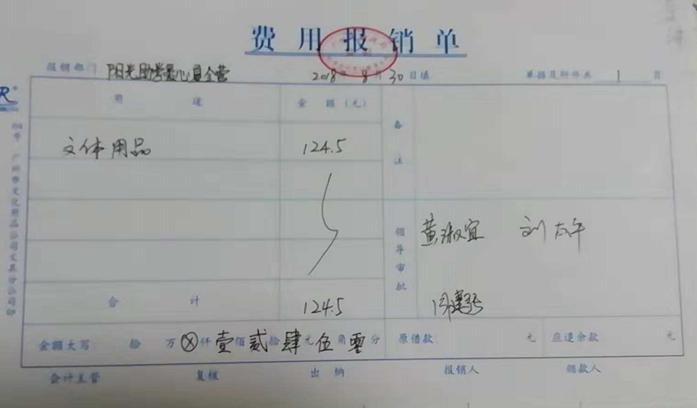 费用报销单
报销部门 阳光助学爱心夏令营 2018年8月30日填 单据及附件共 1 页
用途 金额(元)
文体用品 124.5
备注
领导审批
黄淑宜
合计 124.5
金额大写 拾 万 ⊗ 仟 壹 佰 贰 拾 肆 元 伍 角 零 分 原借款 元 应退余款 元
会计主管 复核 出纳 报销人 领款人